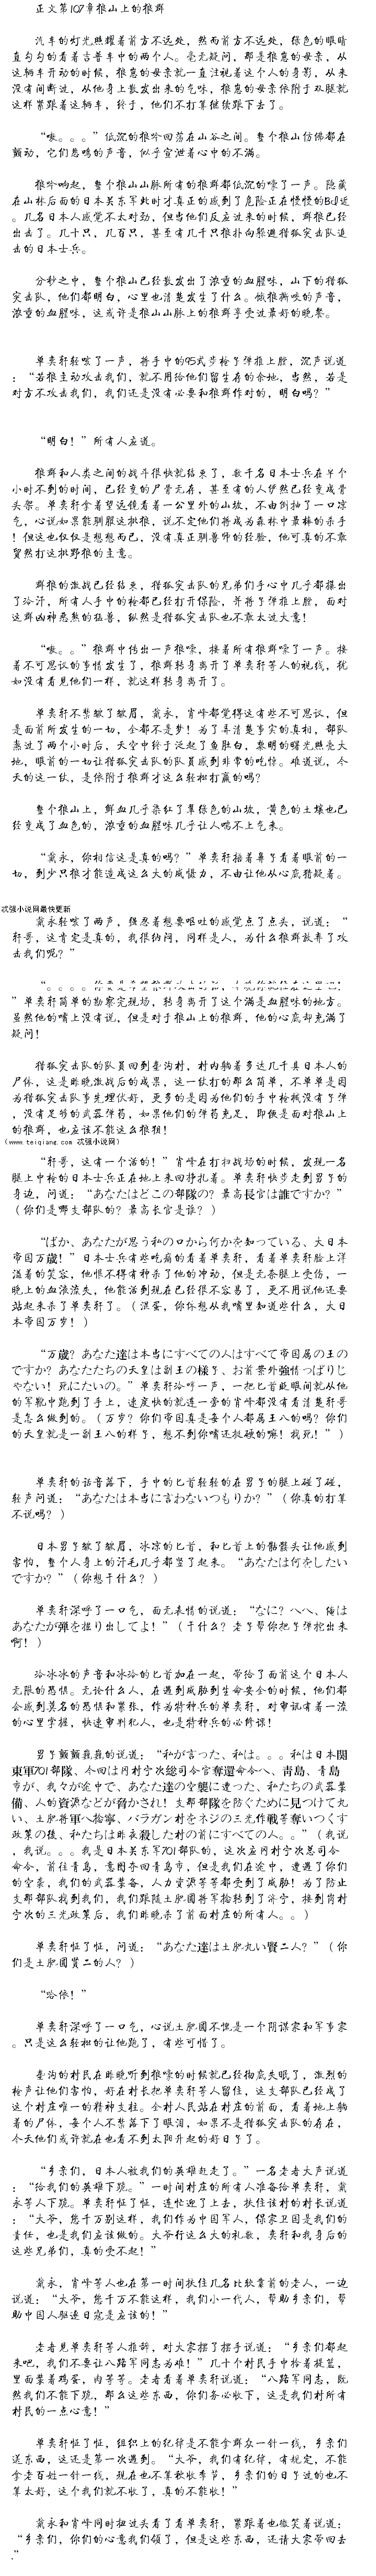 正文第107章狼山上的狼群
汽车的灯光照耀着前方不远处，然而前方不远处，绿色的眼睛
直勾勾的看着吉普车中的两个人。毫无疑问，那是狼崽的母亲，从
这辆车开动的时候，狼崽的母亲就一直注视着这个人的身影，从来
没有间断过，从他身上散发出来的气味，狼崽的母亲依附于双腿就
这样紧跟着这辆车，终于，他们不打算继续跟下去了。
“嗷。。。”低沉的狼吟回荡在山谷之间。整个狼山仿佛都在
颤动，它们悲鸣的声音，似乎宣泄着心中的不满。
狼吟响起，整个狼山山脉所有的狼群都低沉的嚎了一声。隐藏
在山林后面的日本关东军此时才真正的感到了危险正在慢慢的
出击了。几十只，几百只，甚至有几千只狼扑向躲避猎狐突击队追
击的日本士兵。
分秒之中，整个狼山已经散发出了浓重的血腥味，山下的猎狐
突击队，他们都明白，心里也清楚发生了什么。饿狼撕咬的声音，
浓重的血腥味，这或许是狼山山脉上的狼群享受过最好的晚餐。
单奕轩轻咳了一声，将手中的95式步枪子弹推上膛，沉声说道
：“若狼主动攻击我们，就不用给他们留生存的余地，当然，若是
对方不攻击我们，我们还是没有必要和狼群作对的，明白吗？”
“明白！”所有人应道。
狼群和人类之间的战斗很快就结束了，数千名日本士兵在半个
小时不到的时间，已经变的尸骨无存，甚至有的人俨然已经变成骨
头架。单奕轩拿着望远镜看着一公里外的山坡，不由倒抽了一口凉
气，心说如果能驯服这批狼，说不定他们将成为森林中最棒的杀手
！但这也仅仅是想想而已，没有真正驯兽师的经验，他可真的不敢
贸然打这批野狼的主意。
群狼的激战已经结束，猎狐突击队的兄弟们手心中几乎都攥出
了冷汗，所有人手中的枪都已经打开保险，并将子弹推上膛，面对
这群凶神恶煞的猛兽，纵然是猎狐突击队也不敢太过大意！
“嗷。。”狼群中传出一声狼嚎，接着所有狼群嚎了一声。接
着不可思议的事情发生了，狼群转身离开了单奕轩等人的视线，犹
如没有看见他们一样，就这样转身离开了。
单奕轩不禁皱了皱眉，戴永，肖峰都觉得这有些不可思议，但
是面前所发生的一切，全都不是梦！为了弄清楚事实的真相，部队
熬过了两个小时后，天空中终于泛起了鱼肚白，黎明的曙光照亮大
地，眼前的一切让猎狐突击队的队员感到非常的吃惊。难道说，今
天的这一仗，是依附于狼群才这么轻松打赢的吗？
整个狼山上，鲜血几乎染红了翠绿色的山坡，黄色的土壤也已
经变成了血色的，浓重的血腥味几乎让人喘不上气来。
“戴永，你相信这是真的吗？”单奕轩捂着鼻子看着眼前的一
切，到少只狼才能造成这么大的威慑力，不由让他从心底猜疑着。
忒强小说网最快更新
戴永轻咳了两声，强忍着想要呕吐的感觉点了点头，说道：“
轩哥，这肯定是真的，我很纳闷，同样是人，为什么狼群放弃了攻
击我们呢？”
”单奕轩简单的勘察完现场，转身离开了这个满是血腥味的地方。
虽然他的嘴上没有说，但是对于狼山上的狼群，他的心底却充满了
疑问！
猎狐突击队的队员回到娄沟村，村内躺着多达几千具日本人的
尸体，这是昨晚激战后的成果，这一仗打的那么简单，不单单是因
为猎狐突击队事先埋伏好，更多的是因为他们的手中枪械没有子弹
，没有足够的武器弹药，如果他们的弹药充足，即便是面对狼山上
的狼群，也应该不能这么狼狈！
（www．teiqiang．com 忒强小说网）
“轩哥，这有一个活的！”肖峰在打扫战场的时候，发现一名
腿上中枪的日本士兵正在地上来回挣扎着。单奕轩快步走到男子的
身边，问道：“あなたはどこの部隊の？最高長官は誰ですか？”
（你们是哪支部队的？最高长官是谁？）
“ばか、あなたが思う私の口から何かを知っている、大日本
帝国万歳！”日本士兵有些吃痛的看着单奕轩，看着单奕轩脸上洋
溢着的笑容，他恨不得有种杀了他的冲动，但是无奈腿上受伤，一
晚上的血液流失，他能活到现在已经很不容易了，更不用说他还要
站起来杀了单奕轩了。（混蛋，你休想从我嘴里知道些什么，大日
本帝国万岁！）
“万歳？あなた達は本当にすべての人はすべて帝国属の王の
ですか？あなたたちの天皇は副王の様子、お前案外強情っぱりじ
ゃない！死にたいの。”单奕轩冷哼一声，一把匕首眨眼间就从他
的军靴中跑到了手上，速度快的就连一旁的肖峰都没有看清楚轩哥
是怎么做到的。（万岁？你们帝国真是每个人都属王八的吗？你们
的天皇就是一副王八的样子，想不到你嘴还挺硬的嘛！找死！”）
单奕轩的话音落下，手中的匕首轻轻的在男子的腿上碰了碰，
轻声问道：“あなたは本当に言わないつもりか？”（你真的打算
不说吗？）
日本男子皱了皱眉，冰凉的匕首，和匕首上的骷髅头让他感到
害怕，整个人身上的汗毛几乎都竖了起来。“あなたは何をしたい
ですか？”（你想干什么？）
单奕轩深呼了一口气，面无表情的说道：“なに？へへ、俺は
あなたが弾を掘り出してよ！”（干什么？老子帮你把子弹挖出来
啊！）
冷冰冰的声音和冰冷的匕首加在一起，带给了面前这个日本人
无限的恐惧。无论什么人，在遇到威胁到生命安全的时候，他们都
会感到莫名的恐惧和紧张，作为特种兵的单奕轩，对审讯有着一流
的心里掌握，快速审判犯人，也是特种兵的必修课！
男子颤颤巍巍的说道：“私が言った、私は。。。私は日本関
東軍701部隊、今回は冈村宁次総司令官奪還命令へ、青島、青島
市が、我々が途中で、あなた達の空襲に遭った、私たちの武器装
備、人的資源などが脅かされ！支那部隊を防ぐために見つけて丸
い、土肥将軍へ捨寧、バラガン村をネジの三光作戦等奪いつくす
政策の後、私たちは昨夜殺した村の前にすべての人。。”（我说
，我说。。。我是日本关东军701部队的，这次在冈村宁次总司令
命令，前往青岛，意图夺回青岛市，但是我们在途中，遭遇了你们
的空袭，我们的武器装备，人力资源等等都受到了威胁！为了防止
支那部队找到我们，我们跟随土肥圆将军捡转到了济宁，接到冈村
宁次的三光政策后，我们昨晚杀了前面村庄的所有人。。）
单奕轩怔了怔，问道：“あなた達は土肥丸い賢二人？”（你
们是土肥圆贤二的人？）
“哈依！”
单奕轩深呼了一口气，心说土肥圆不愧是一个阴谋家和军事家
。只是这么轻松的让他跑了，有些可惜了。
娄沟的村民在昨晚听到狼嚎的时候就已经彻底失眠了，激烈的
枪声让他们害怕，好在村长把单奕轩等人留住，这支部队已经成了
这个村庄唯一的精神支柱。全村人民站在村庄的前面，看着地上躺
着的尸体，每个人不禁落下了眼泪，如果不是猎狐突击队的存在，
今天他们或许就在也看不到太阳升起的好日子了。
“乡亲们，日本人被我们的英雄赶走了。”一名老者大声说道
：“给我们的英雄下跪。”一时间村庄的所有人准备给单奕轩，戴
永等人下跪。单奕轩怔了怔，连忙迎了上去，扶住该村的村长说道
：“大爷，您千万别这样，我们作为中国军人，保家卫国是我们的
责任，也是我们应该做的。大爷行这么大的礼数，奕轩和我身后的
这些兄弟们，真的受不起！”
戴永，肖峰等人也在第一时间扶住几名比较靠前的老人，一边
说道：“大爷，您千万不能这样，我们小一代人，帮助乡亲们，帮
助中国人驱逐日寇是应该的！”
老者见单奕轩等人推辞，对大家摆了摆手说道：“乡亲们都起
来吧，我们不要让八路军同志为难！”几十个村民手中拎着提篮，
里面装着鸡蛋，肉等等。老者看着单奕轩说道：“八路军同志，既
然我们不能下跪，那么这些东西，你们务必收下，这是我们村所有
村民的一点心意！”
单奕轩怔了怔，组织上的纪律是不能拿群众一针一线，乡亲们
送东西，这还是第一次遇到。“大爷，我们有纪律，有规定，不能
拿老百姓一针一线，现在也不算秋收季节，乡亲们的日子过的也不
算太好，这个我们就不收了，真的不能收！”
戴永和肖峰同时扭过头看了看单奕轩，紧跟着也微笑着说道：
“乡亲们，你们的心意我们领了，但是这些东西，还请大家带回去
。”